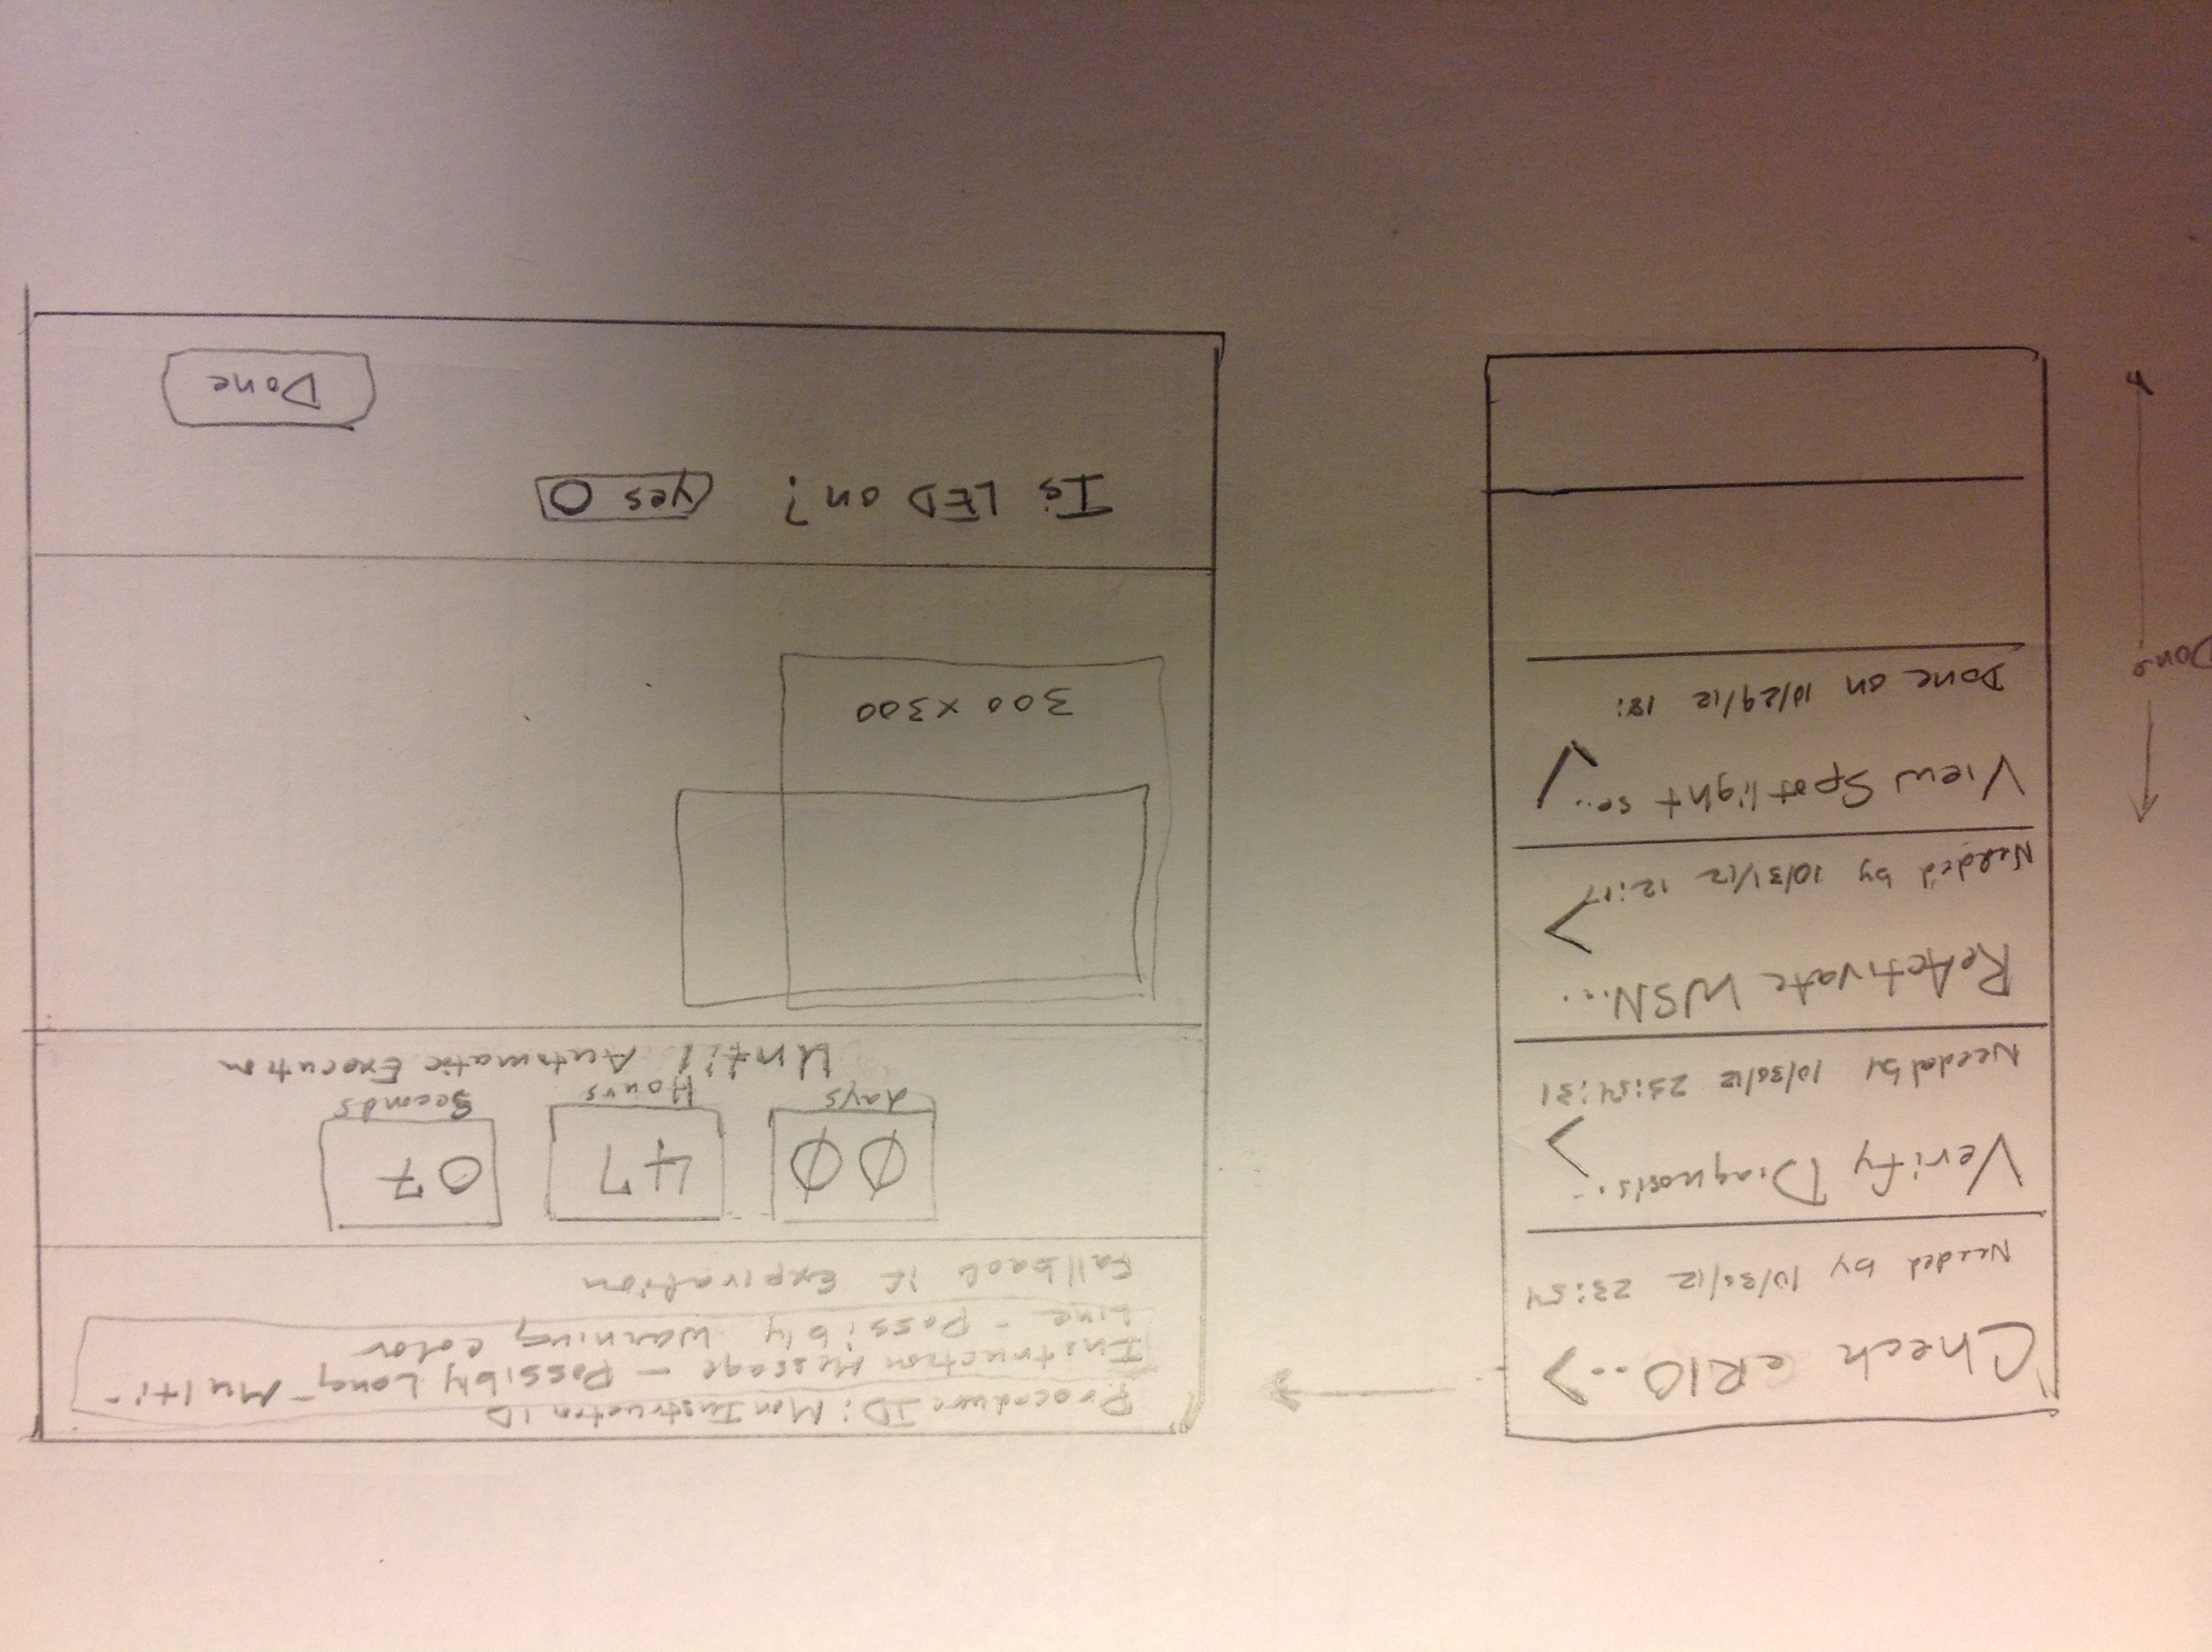 Check cRIO..>
Needed by 10/30/12 23:54
Verify Diagnosis..
>
Needed by 10/30/12 23:54:31
ReActivate WSN...
>
Needed by 10/31/12 12:17
View Spotlight se..
✓
Done on 10/29/12 18:
Done
Procedure ID: Man Instruction ID
Instruction Message - Possibly Long - Multi-
Line - Possibly Warning Color
Fallback if Expiration
00 47 07
days Hours Seconds
Until Automatic Execution
300 x 300
Is LED on? yes O
Done